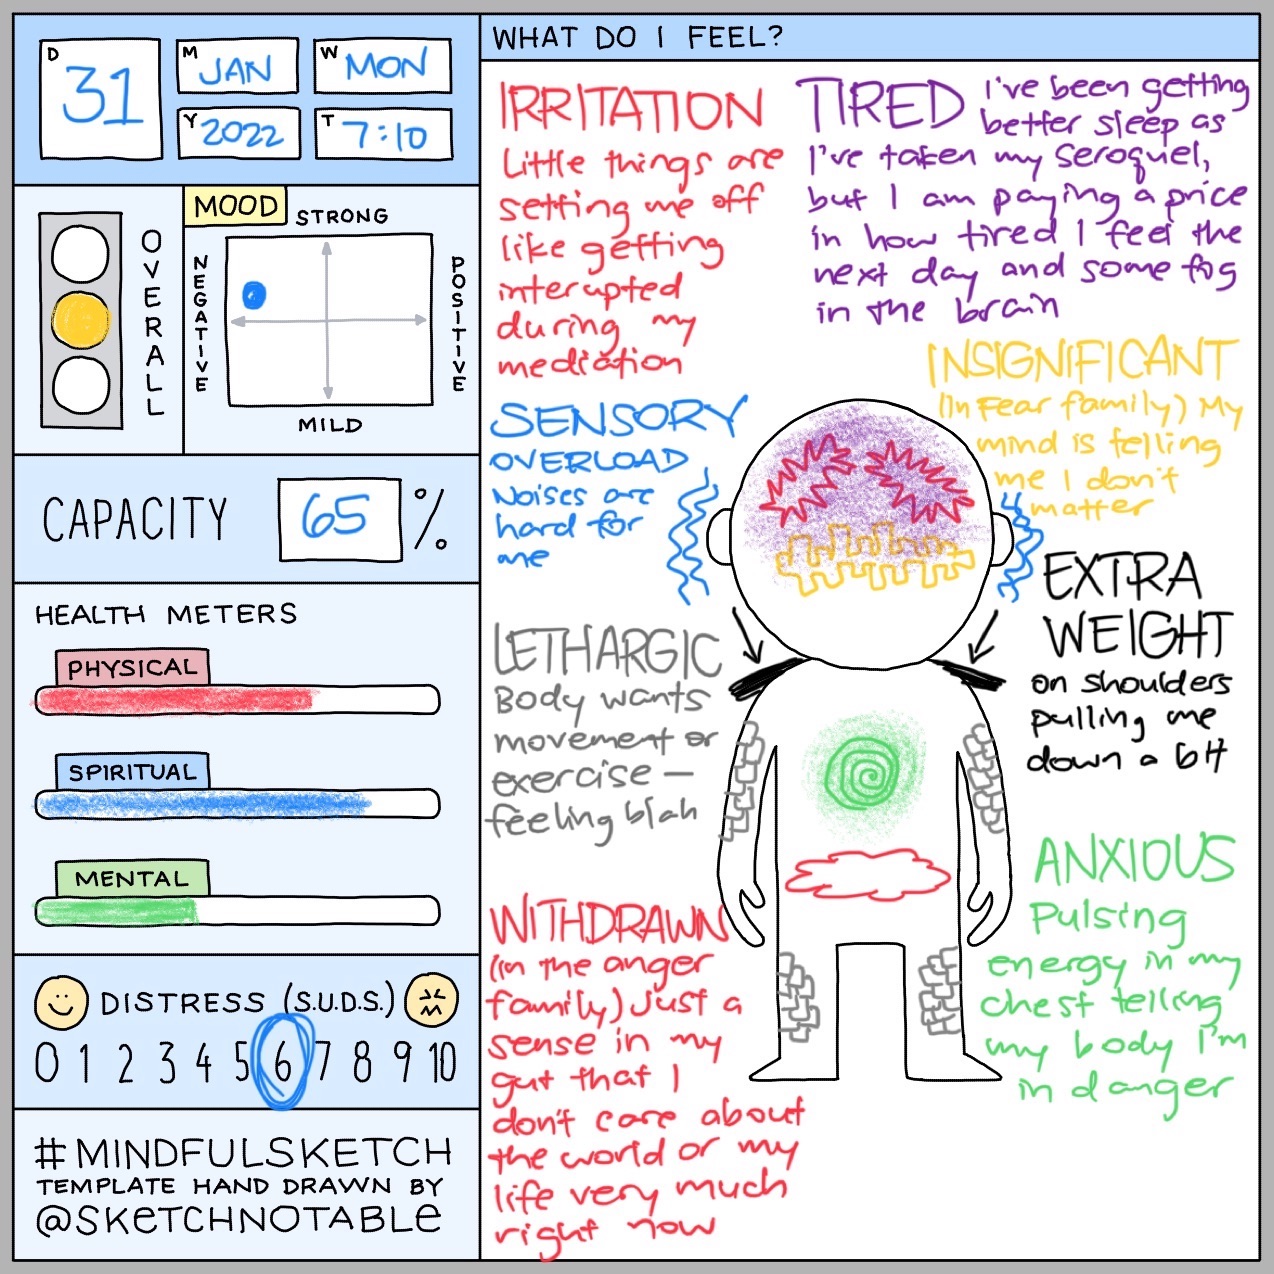 D 31
M JAN
W MON
Y 2022
T 7:10
OVERALL
MOOD
STRONG
NEGATIVE
POSITIVE
MILD
CAPACITY 65 %
HEALTH METERS
PHYSICAL
SPIRITUAL
MENTAL
DISTRESS (S.U.D.S.)
0 1 2 3 4 5 6 7 8 9 10
#MINDFULSKETCH
TEMPLATE HAND DRAWN BY
@SKETCHNOTABLE
WHAT DO I FEEL?
IRRITATION
Little things are
setting me off
like getting
interupted
during my
mediation
TIRED I've been getting
better sleep as
I've taken my seroquel,
but I am paying a price
in how tired I feel the
next day and some fog
in the brain
INSIGNIFICANT
(In Fear family) My
mind is telling
me I don't
matter
SENSORY
OVERLOAD
Noises are
hard for
me
EXTRA
WEIGHT
on shoulders
pulling me
down a bit
LETHARGIC
Body wants
movement or
exercise —
feeling blah
ANXIOUS
Pulsing
energy in my
chest telling
my body I'm
in danger
WITHDRAWN
(in the anger
family) Just a
sense in my
gut that I
don't care about
the world or my
life very much
right now